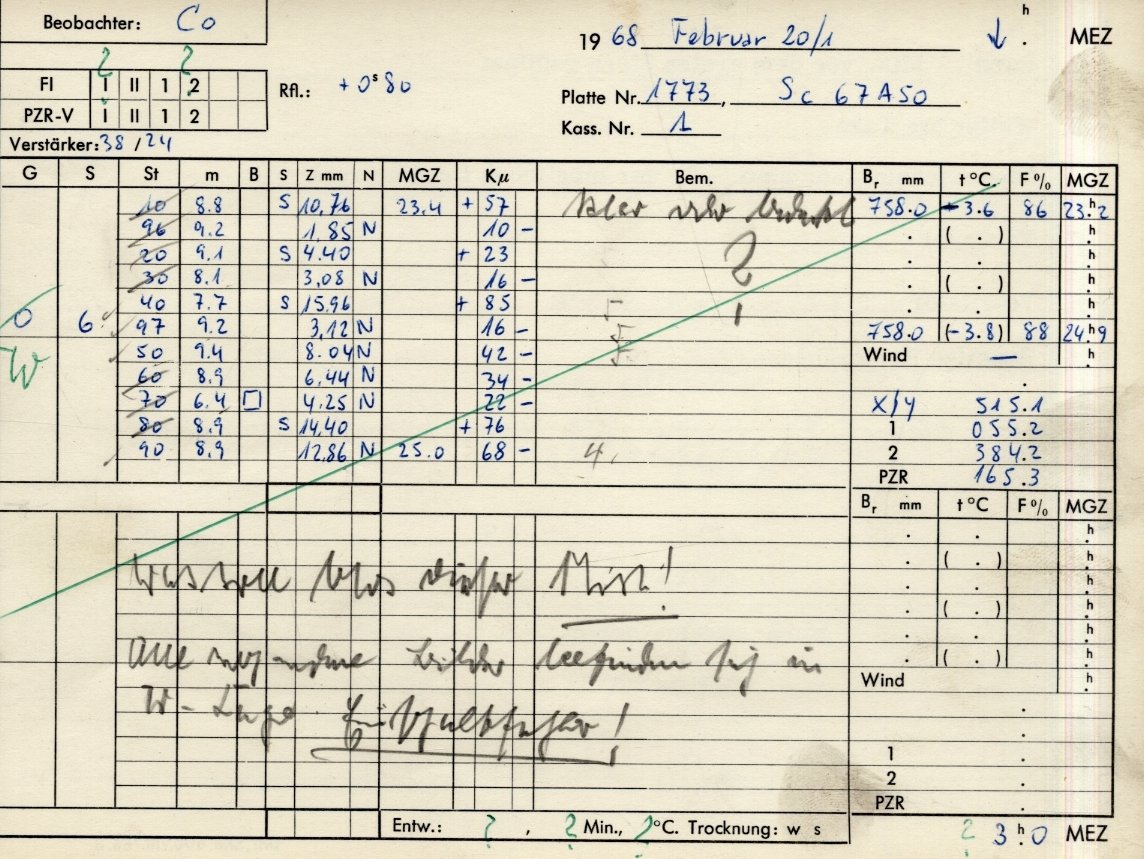 Beobachter: Co
19 68 Februar 20/1 ↓ . h MEZ
FI I II 1 2
PZR-V I II 1 2
Rfl.: + 0ˢ80
Platte Nr. 1773, Sc 67A50
Kass. Nr. 1
Verstärker: 38 / 24
G S St m B S Z mm N MGZ Kμ Bem. Br mm t °C F % MGZ
10 8.8 S 10,76 23.4 + 57 klar oder bedeckt 758.0 - 3.6 86 23.h2
96 9.2 1,85 N 10 - ( . ) . h
20 9.1 S 4.40 + 23 ? . h
30 8.1 3,08 N 16 - ( . ) . h
40 7.7 S 15,96 + 85 . h
O 6 97 9.2 3,12 N 16 - 758.0 (-3.8) 88 24.h9
W 50 9.4 8.04 N 42 - Wind — . h
60 8.9 6,44 N 34 -
70 6.4 □ 4.25 N 22 - X/Y 515.1
80 8.9 S 14,40 + 76 1 055.2
90 8,9 12,86 N 25.0 68 - 4. 2 384.2
PZR 165.3
Br mm t °C F % MGZ
. . . h
. ( . ) . h
Was soll blos dieser Mist!
. . . h
. ( . ) . h
. . . h
Alle Bilder befinden sich in
. ( . ) . h
Wind . h
W-Lage !
1 .
2 .
PZR .
Entw.: ? , ? Min., ? °C. Trocknung: w s
? 3 h 0 MEZ